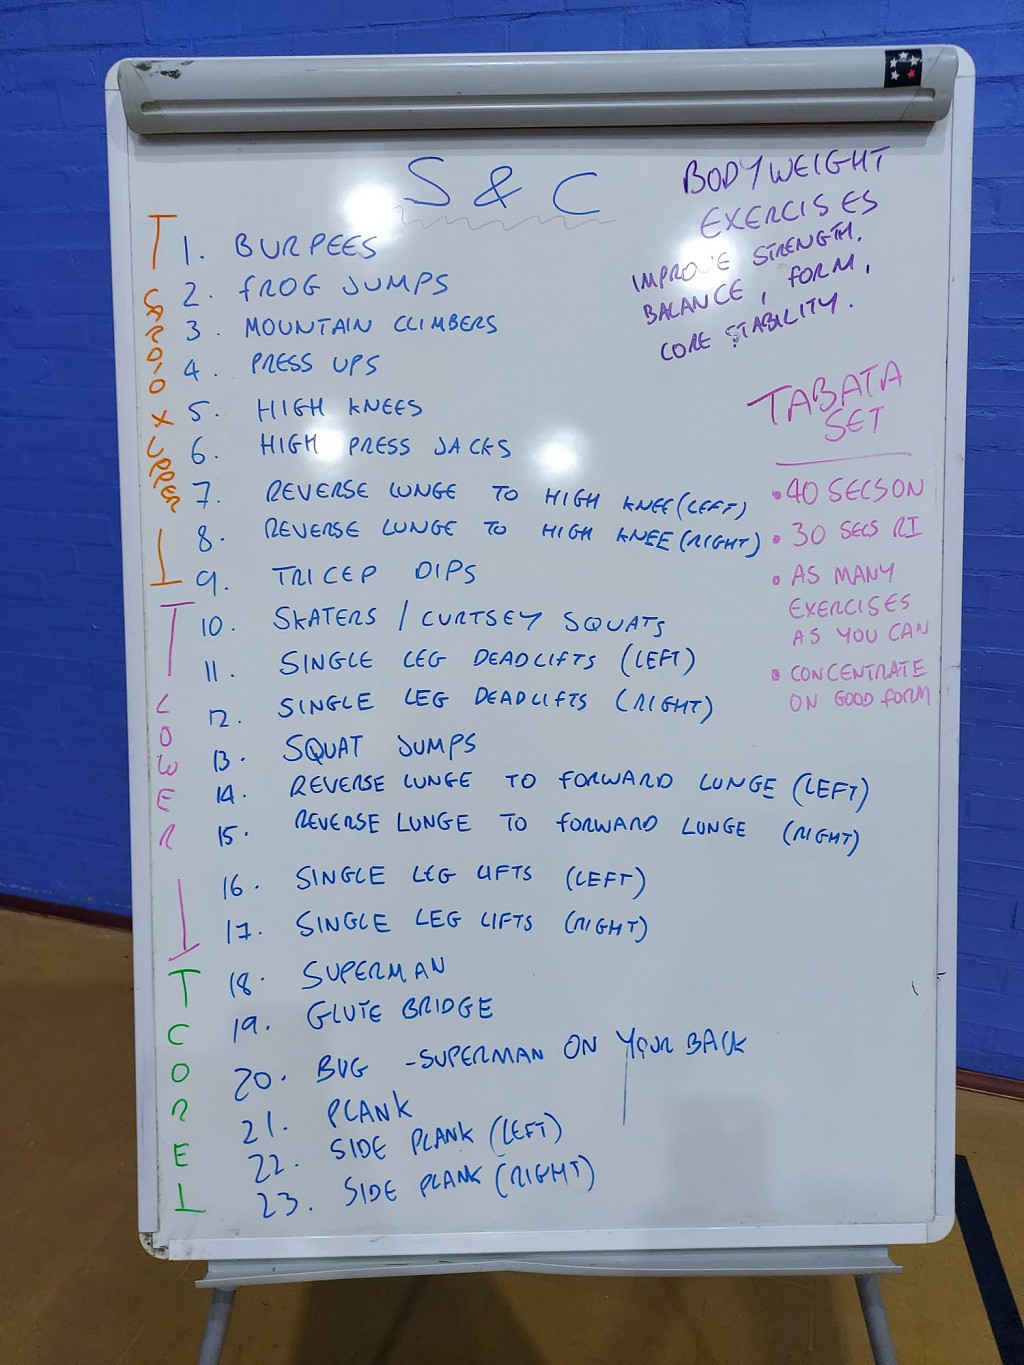 S & C
BODYWEIGHT
EXERCISES
IMPROVE STRENGTH,
BALANCE, FORM,
CORE STABILITY.
CARDIO X UPPER
1. BURPEES
2. FROG JUMPS
3. MOUNTAIN CLIMBERS
4. PRESS UPS
5. HIGH KNEES
6. HIGH PRESS JACKS
7. REVERSE LUNGE TO HIGH KNEE (LEFT)
8. REVERSE LUNGE TO HIGH KNEE (RIGHT)
9. TRICEP DIPS
LOWER
10. SKATERS / CURTSEY SQUATS
11. SINGLE LEG DEADLIFTS (LEFT)
12. SINGLE LEG DEADLIFTS (RIGHT)
13. SQUAT JUMPS
14. REVERSE LUNGE TO FORWARD LUNGE (LEFT)
15. REVERSE LUNGE TO FORWARD LUNGE (RIGHT)
16. SINGLE LEG LIFTS (LEFT)
17. SINGLE LEG LIFTS (RIGHT)
CORE
18. SUPERMAN
19. GLUTE BRIDGE
20. BUG - SUPERMAN ON YOUR BACK
21. PLANK
22. SIDE PLANK (LEFT)
23. SIDE PLANK (RIGHT)
TABATA
SET
• 40 SECS ON
• 30 SECS RI
• AS MANY
EXERCISES
AS YOU CAN
• CONCENTRATE
ON GOOD FORM